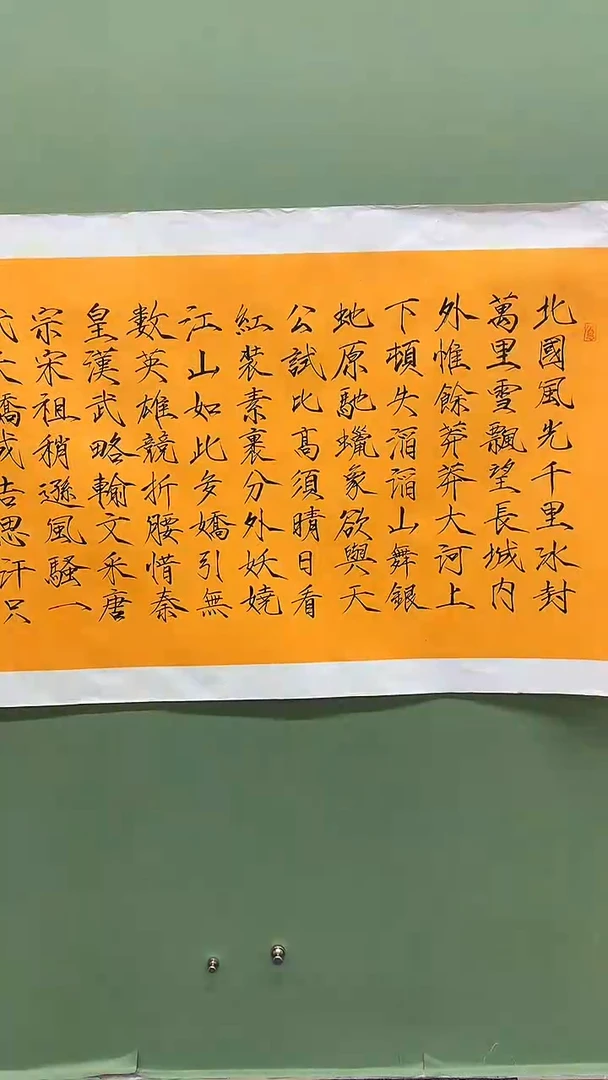 北國風光千里冰封
萬里雪飄望長城内
外惟餘莽莽大河上
下頓失滔滔山舞銀
虵原馳蠟象欲與天
公試比高須晴日看
紅裝素裹分外妖嬈
江山如此多嬌引無
數英雄競折腰惜秦
皇漢武略輸文采唐
宗宋祖稍遜風騷一
代天成吉思汗只